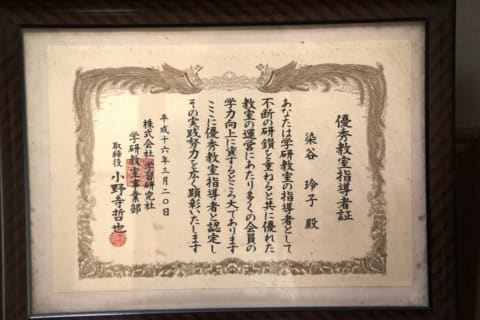 優秀教室指導者証
染谷 玲子 殿
あなたは学研教室の指導者として
不断の研鑽を重ねると共に優れた
教室の運営にあたり多くの会員の
学力向上に資するところ大であります
ここに優秀教室指導者と認定し
その実践努力を広く顕彰いたします
平成十六年三月二〇日
株式会社学習研究社
学研教室事業部
取締役 小野寺哲也